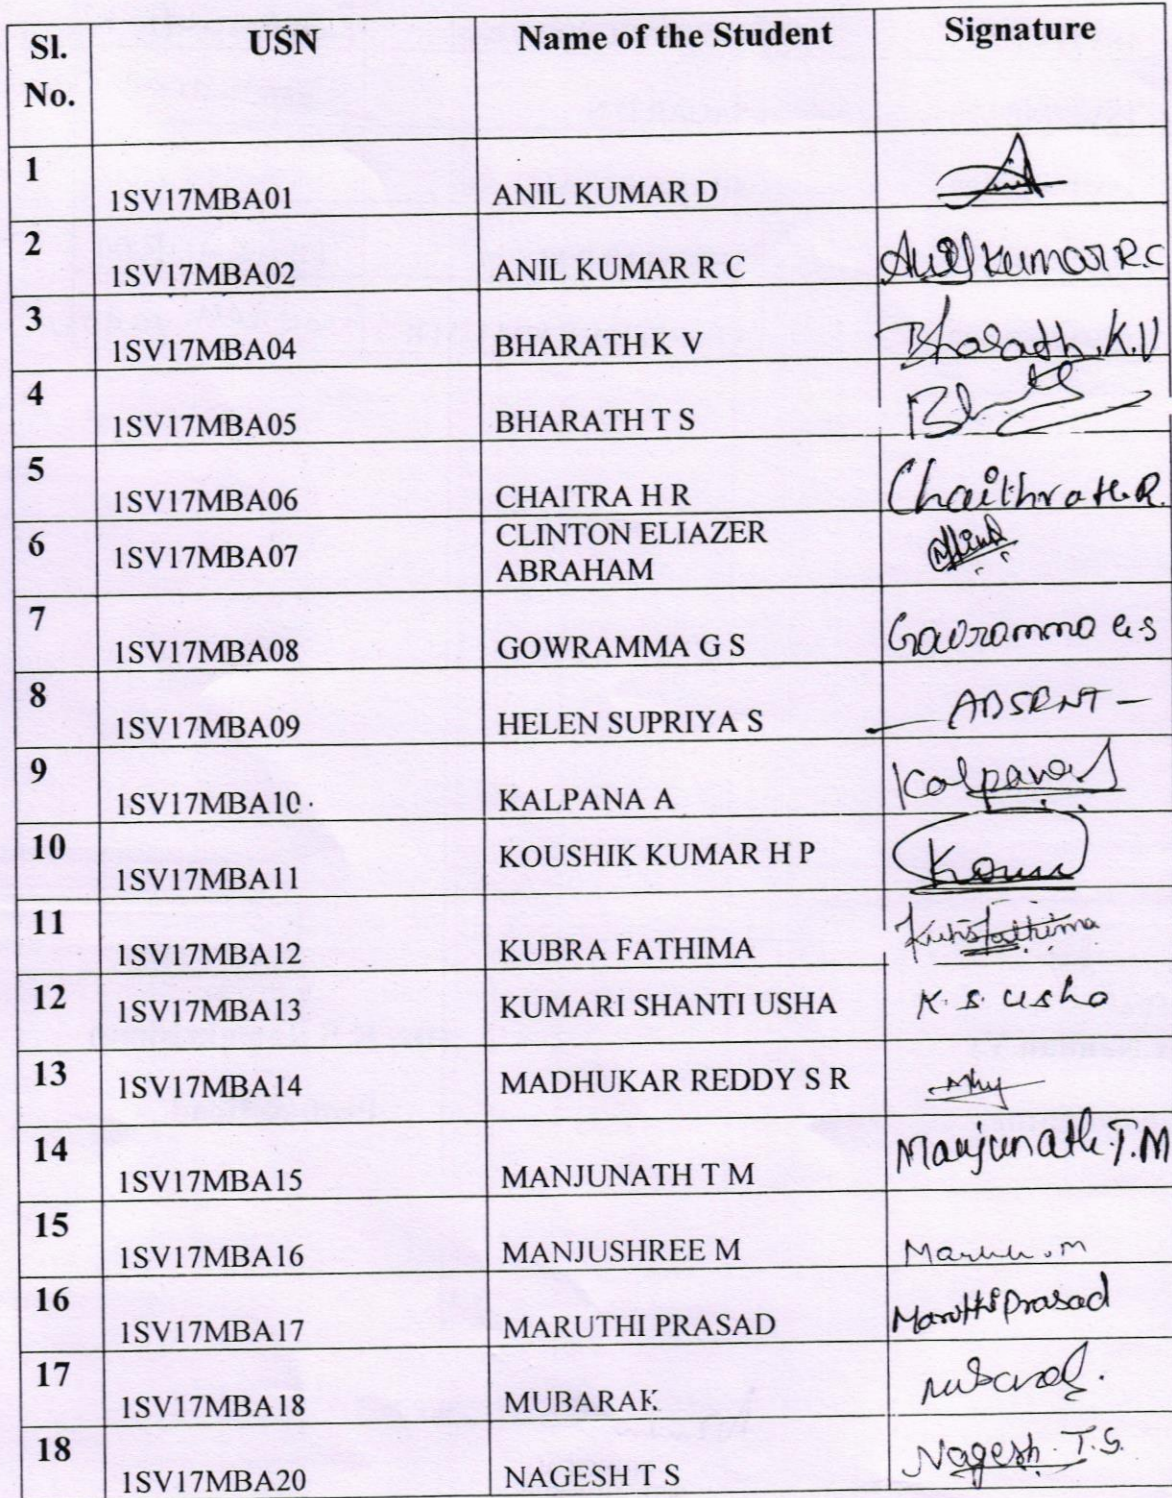 Sl. No. USN Name of the Student Signature
1 1SV17MBA01 ANIL KUMAR D
2 1SV17MBA02 ANIL KUMAR R C Anil Kumar R.C
3 1SV17MBA04 BHARATH K V Bharath.K.V
4 1SV17MBA05 BHARATH T S
5 1SV17MBA06 CHAITRA H R Chaithra H.R.
6 1SV17MBA07 CLINTON ELIAZER
ABRAHAM
7 1SV17MBA08 GOWRAMMA G S Gowramma G.S
8 1SV17MBA09 HELEN SUPRIYA S — ABSENT —
9 1SV17MBA10 KALPANA A Kalpana
10 1SV17MBA11 KOUSHIK KUMAR H P
11 1SV17MBA12 KUBRA FATHIMA
12 1SV17MBA13 KUMARI SHANTI USHA K.S. Usha
13 1SV17MBA14 MADHUKAR REDDY S R
14 1SV17MBA15 MANJUNATH T M Manjunath.T.M
15 1SV17MBA16 MANJUSHREE M
16 1SV17MBA17 MARUTHI PRASAD Maruthi Prasad
17 1SV17MBA18 MUBARAK Mubarak.
18 1SV17MBA20 NAGESH T S Nagesh.T.S.